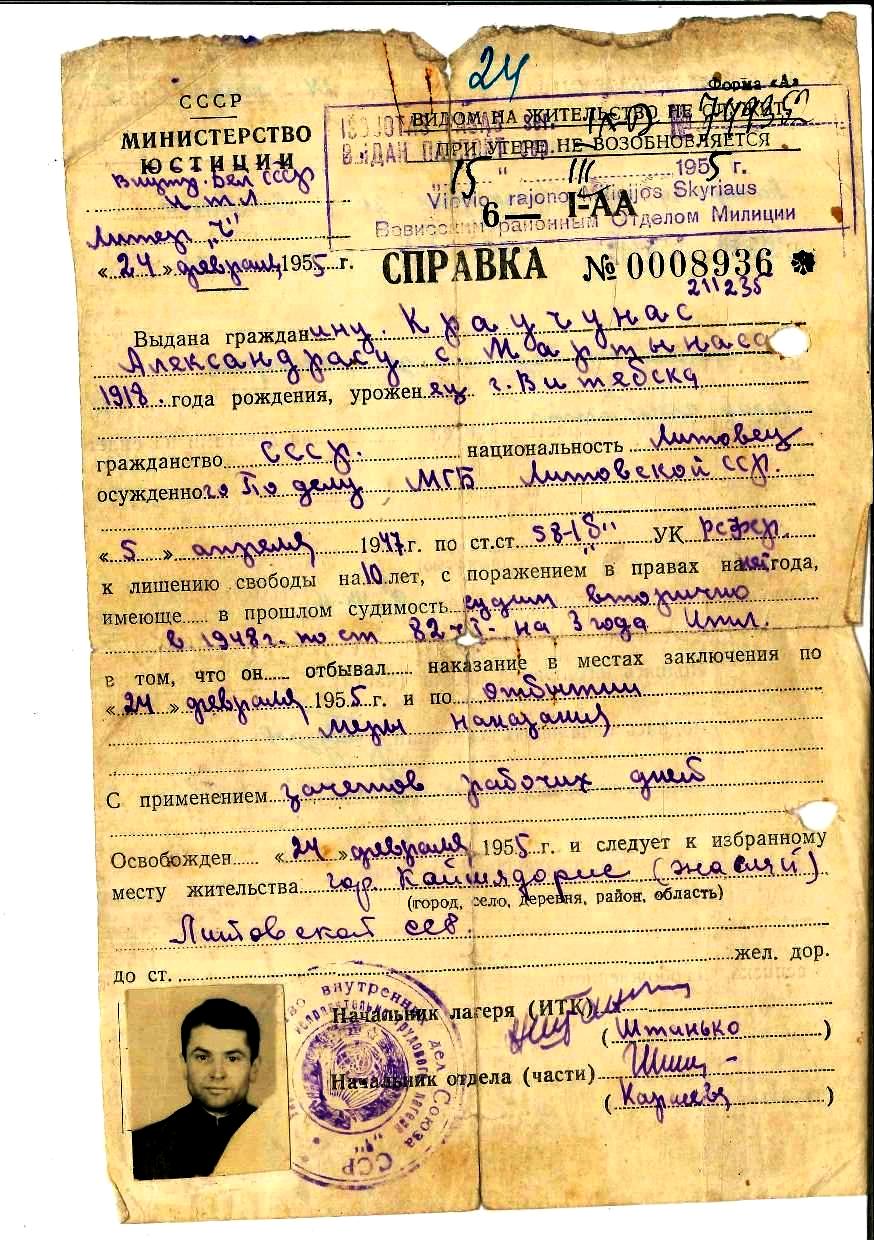 24
Форма «А»
СССР
МИНИСТЕРСТВО
ЮСТИЦИИ
ВИДОМ НА ЖИТЕЛЬСТВО НЕ СЛУЖИТ
ПРИ УТЕРЕ НЕ ВОЗОБНОВЛЯЕТСЯ
ВЫДАН ПАСПОРТ
"15" III 1955 г.
Vievio rajono Milicijos Skyriaus
Вевисским районным Отделом Милиции
Бел СССР
И Т Л
Литер "Ч"
6— I-АА
«24» февраля 1955 г.
СПРАВКА № 0008936 *
211235
Выдана гражданину. Краучунас
Александрасу с. Мартынаса
1918. года рождения, уроженец г. Витебска
гражданство СССР. национальность Литовец
осужденного По делу МГБ Литовской ССР.
«5» апреля 1947 г. по ст.ст 58-1 УК РСФСР.
к лишению свободы на 10 лет, с поражением в правах на нет года,
имеюще в прошлом судимость судим вторично
в 1948 г. по ст 82-I- на 3 года
в том, что он отбывал наказание в местах заключения по
«24» февраля 1955 г. и по отбытии
меры наказания
С применением зачетов рабочих дней
Освобожден «24» февраля 1955 г. и следует к избранному
месту жительства гор Кайшядорис (Жасляй)
(город, село, деревня, район, область)
Литовской ССР.
до ст. жел. дор.
Начальник лагеря (ИТК)
(Штанько)
Начальник отдела (части)
(Карпеев)
внутренних дел Союза ССР